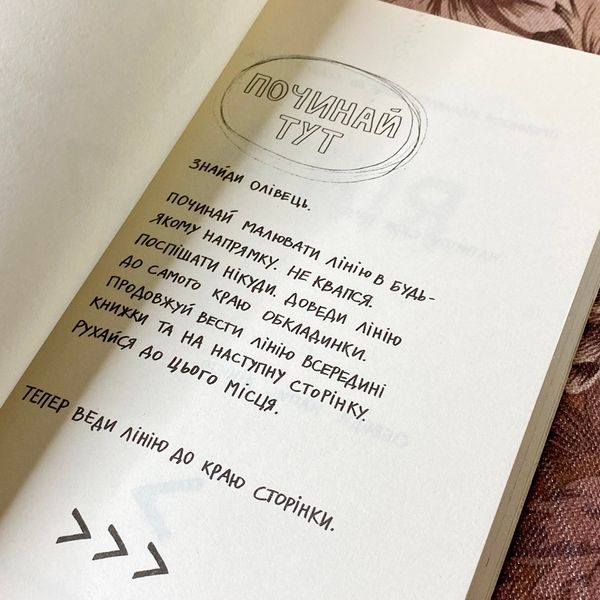 ПОЧИНАЙ
ТУТ
ЗНАЙДИ ОЛІВЕЦЬ.
ПОЧИНАЙ МАЛЮВАТИ ЛІНІЮ В БУДЬ-
ЯКОМУ НАПРЯМКУ. НЕ КВАПСЯ.
ПОСПІШАТИ НІКУДИ. ДОВЕДИ ЛІНІЮ
ДО САМОГО КРАЮ ОБКЛАДИНКИ.
ПРОДОВЖУЙ ВЕСТИ ЛІНІЮ ВСЕРЕДИНІ
КНИЖКИ ТА НА НАСТУПНУ СТОРІНКУ.
РУХАЙСЯ ДО ЦЬОГО МІСЦЯ.
ТЕПЕР ВЕДИ ЛІНІЮ ДО КРАЮ СТОРІНКИ.
>>>